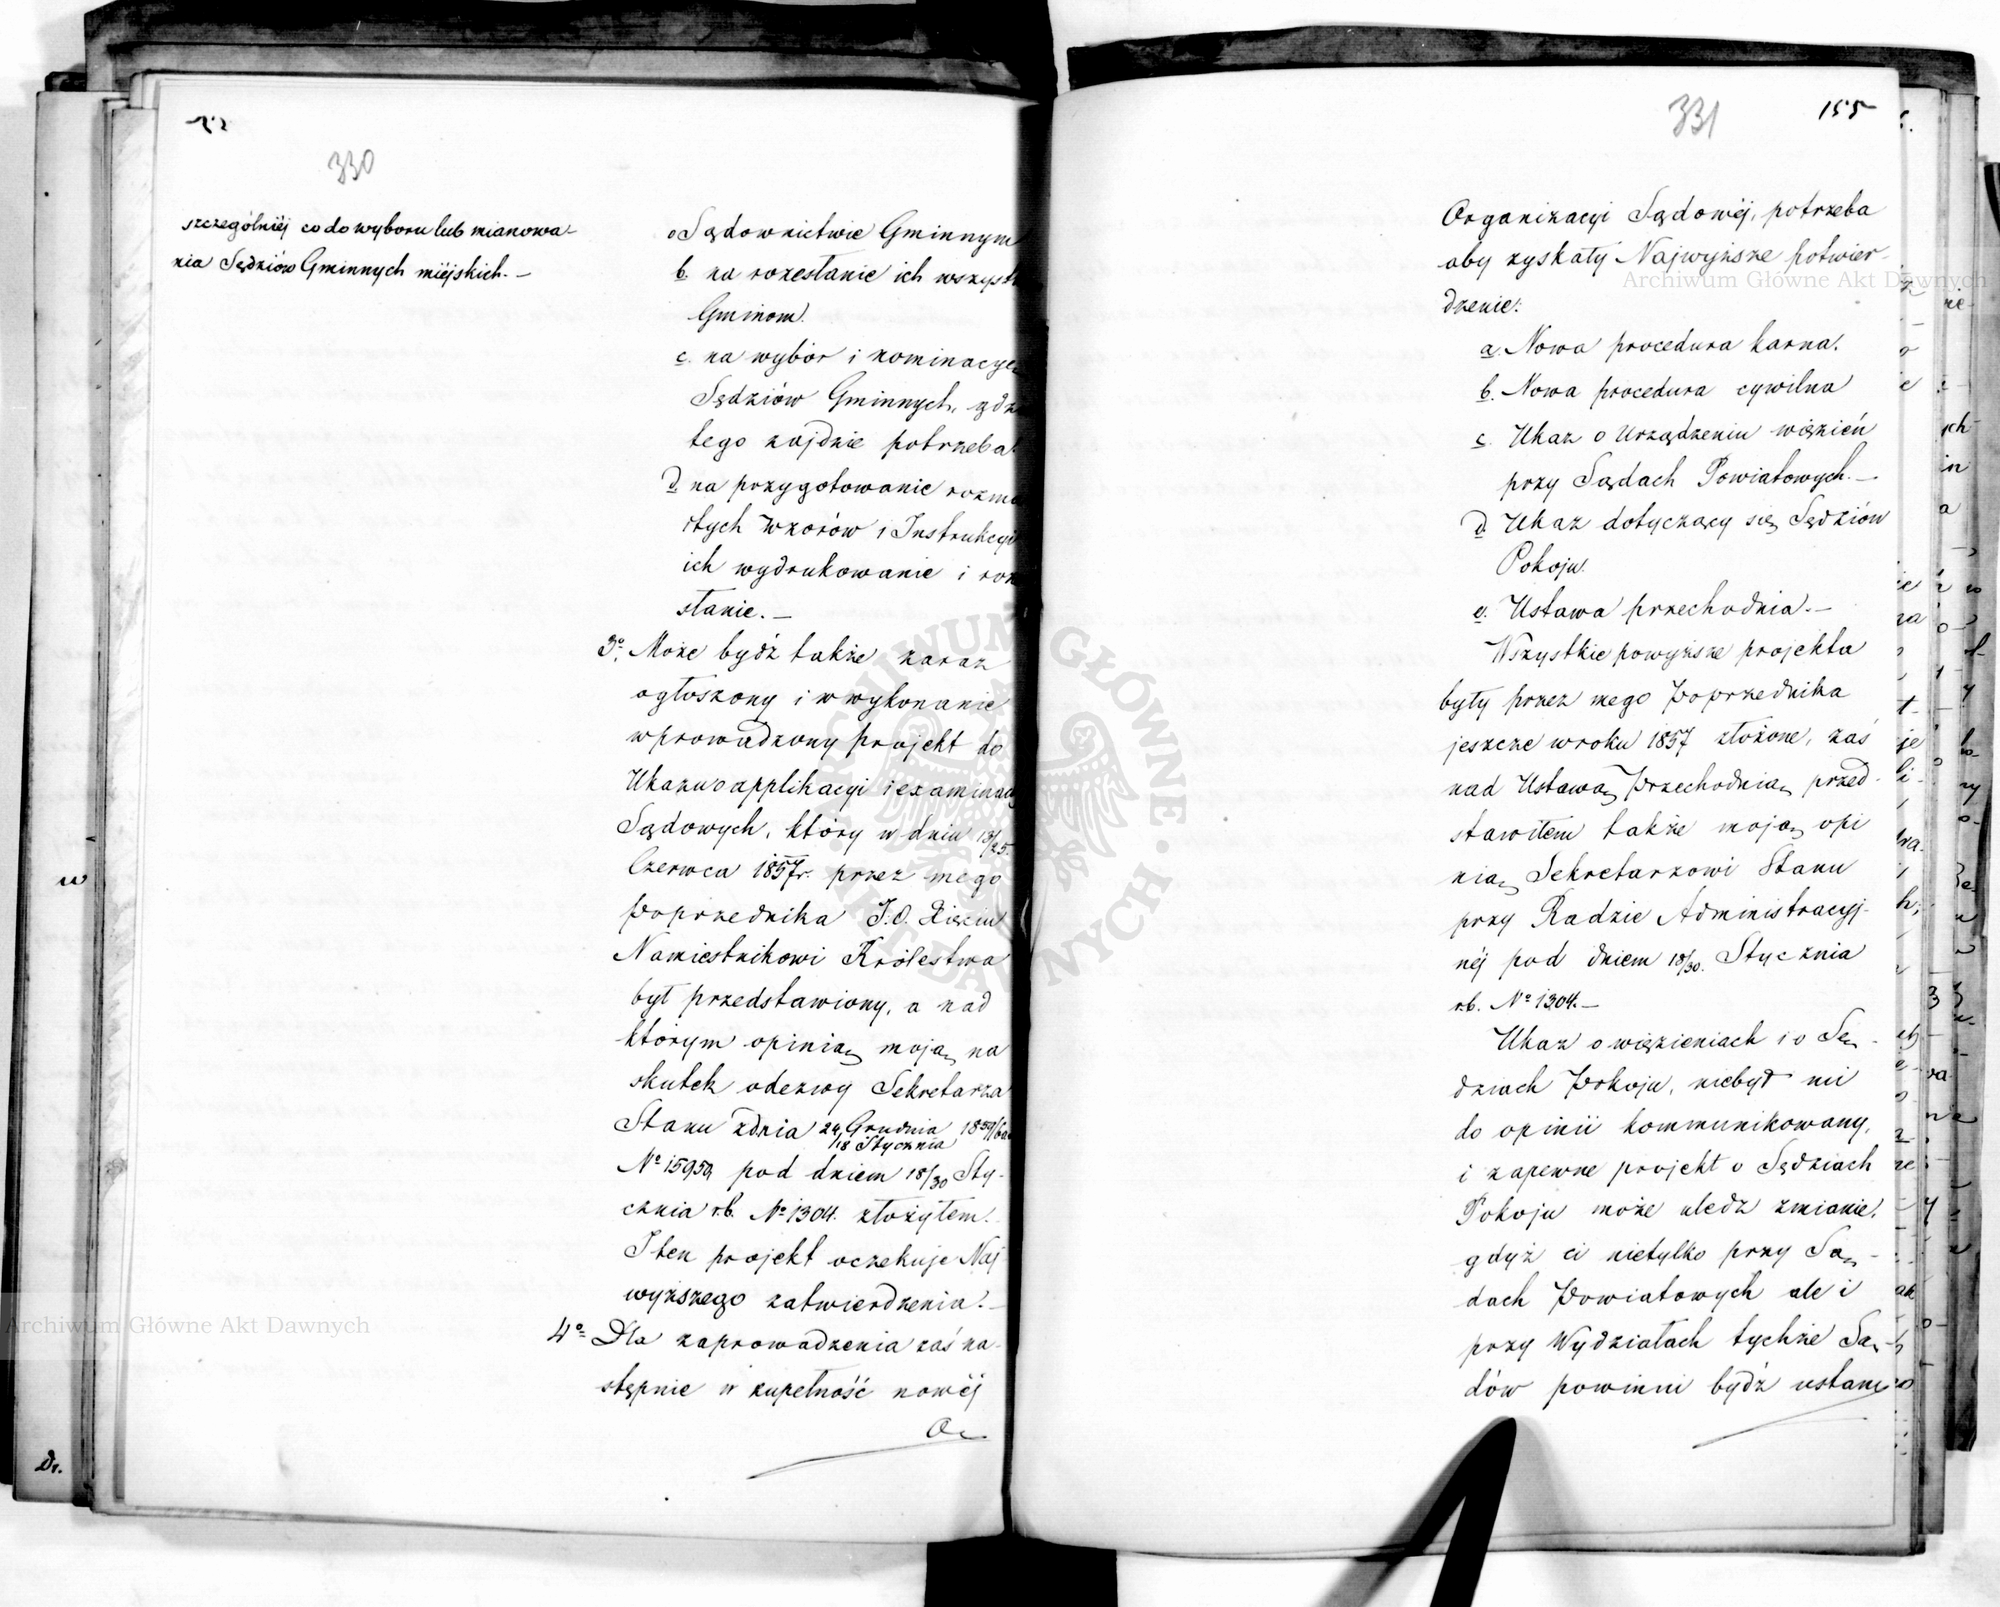 330
szczególniéj co do wyboru lub mianowa-
nia Sędziów Gminnych miéjskich.-
o Sądownictwie Gminnym
b. na rozesłanie ich wszyst
Gminom.
c. na wybór i nominacye
Sędziów Gminnych, gdz
tego zajdzie potrzeba.
d. na przygotowanie rozma
itych wzorów i Instrukcyi
ich wydrukowanie i roz
słanie.-
3º. Może bydź także zaraz
ogłoszony i w wykonanie
wprowadzony projekt do
Ukazu o applikacyi i examinac
Sądowych, który w dniu 13/25.
Czerwca 1857r. przez mego
Poprzednika J.O. Xięciu
Namiestnikowi Królestwa
był przedstawiony, a nad
którym opinią moją na
skutek odezwy Sekretarza
Stanu z dnia 24 Grudnia 1859/60
/18 Stycznia
Nº 15959 pod dniem 18/30 Sty-
cznia r.b. Nº 1304. złożyłem.
I ten projekt oczekuje Naj
wyższego zatwierdzenia.-
4º Dla zaprowadzenia zaś na-
stępnie w zupełność nowéj
Or
331
155
Organizacyi Sądowéj, potrzeba
aby zyskały Najwyższe potwier-
dzenie:
a. Nowa procedura karna.
b. Nowa procedura cywilna
c. Ukaz o Urządzeniu więzień
przy Sądach Powiatowych.-
d. Ukaz dotyczący się Sędziów
Pokoju.
e. Ustawa przechodnia.-
Wszystkie powyższe projekta
były przez mego Poprzednika
jeszcze w roku 1857 złożone, zaś
nad Ustawą Przechodnią przed-
stawiłem także moją opi
nią Sekretarzowi Stanu
przy Radzie Administracyj-
néj pod dniem 18/30. Stycznia
r.b. Nº 1304.-
Ukaz o więzieniach i o Sę-
dziach Pokoju, niebył mi
do opinii kommunikowany,
i zapewne projekt o Sędziach
Pokoju może uledz zmianie,
gdyż ci nietylko przy Są-
dach Powiatowych ale i
przy Wydziałach tychże Są-
dów powinni bydź ustano
Archiwum Główne Akt Dawnych
Archiwum Główne Akt Dawnych
ARCHIWUM GŁÓWNE AKT DAWNYCH